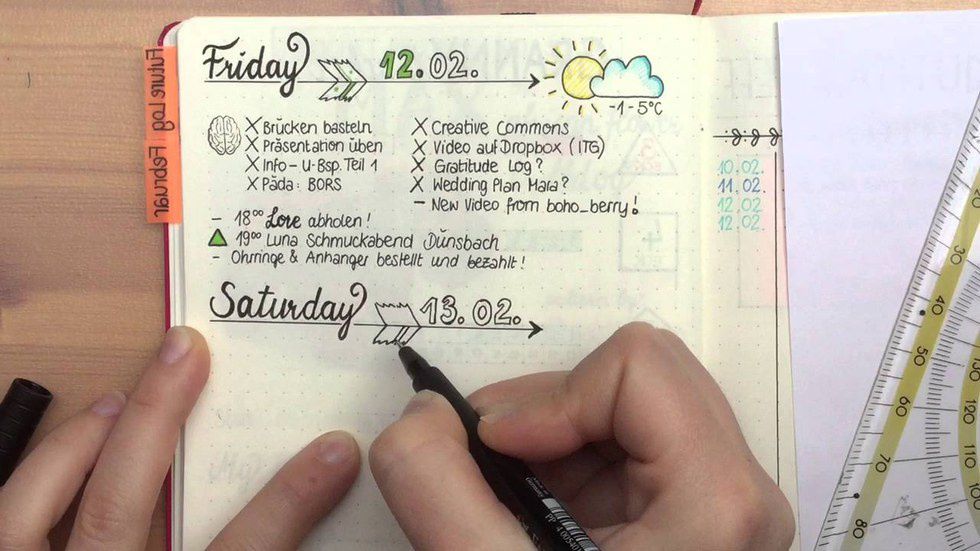 Friday 12.02.
-1-5°C
X Brücken basteln
X Präsentation üben
X Info-U-Bsp. Teil 1
X Päda: BORS
X Creative Commons
X Video auf Dropbox (ITG)
X Gratitude Log?
X Wedding Plan Mara?
- New Video from boho_berry!
- 18⁰⁰ Love abholen!
19⁰⁰ Luna Schmuckabend Dünsbach
- Ohrringe & Anhänger bestellt und bezahlt!
Saturday 13.02.
Future Log
Februar
10.02.
11.02.
12.02.
12.02.
30
40
50
60
70
80
130
120
110
100